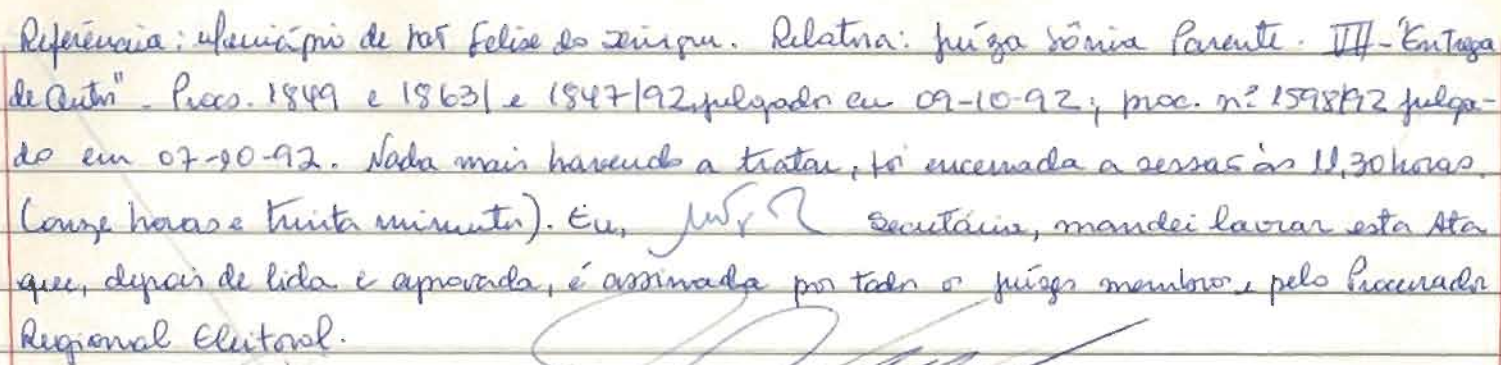 Referência: Município de São Felix do Xingu. Relatora: Juíza Sônia Parente. VII - "Entrega
de Autos" - Procs. 1849 e 1863/ e 1847/92, julgados em 09-10-92; proc. nº 1598/92 julga-
do em 07-10-92. Nada mais havendo a tratar, foi encerrada a sessão às 11,30 horas.
(onze horas e trinta minutos). Eu, Secretária, mandei lavrar esta Ata
que, depois de lida e aprovada, é assinada por todos os juízes membros e pelo Procurador
Regional Eleitoral.